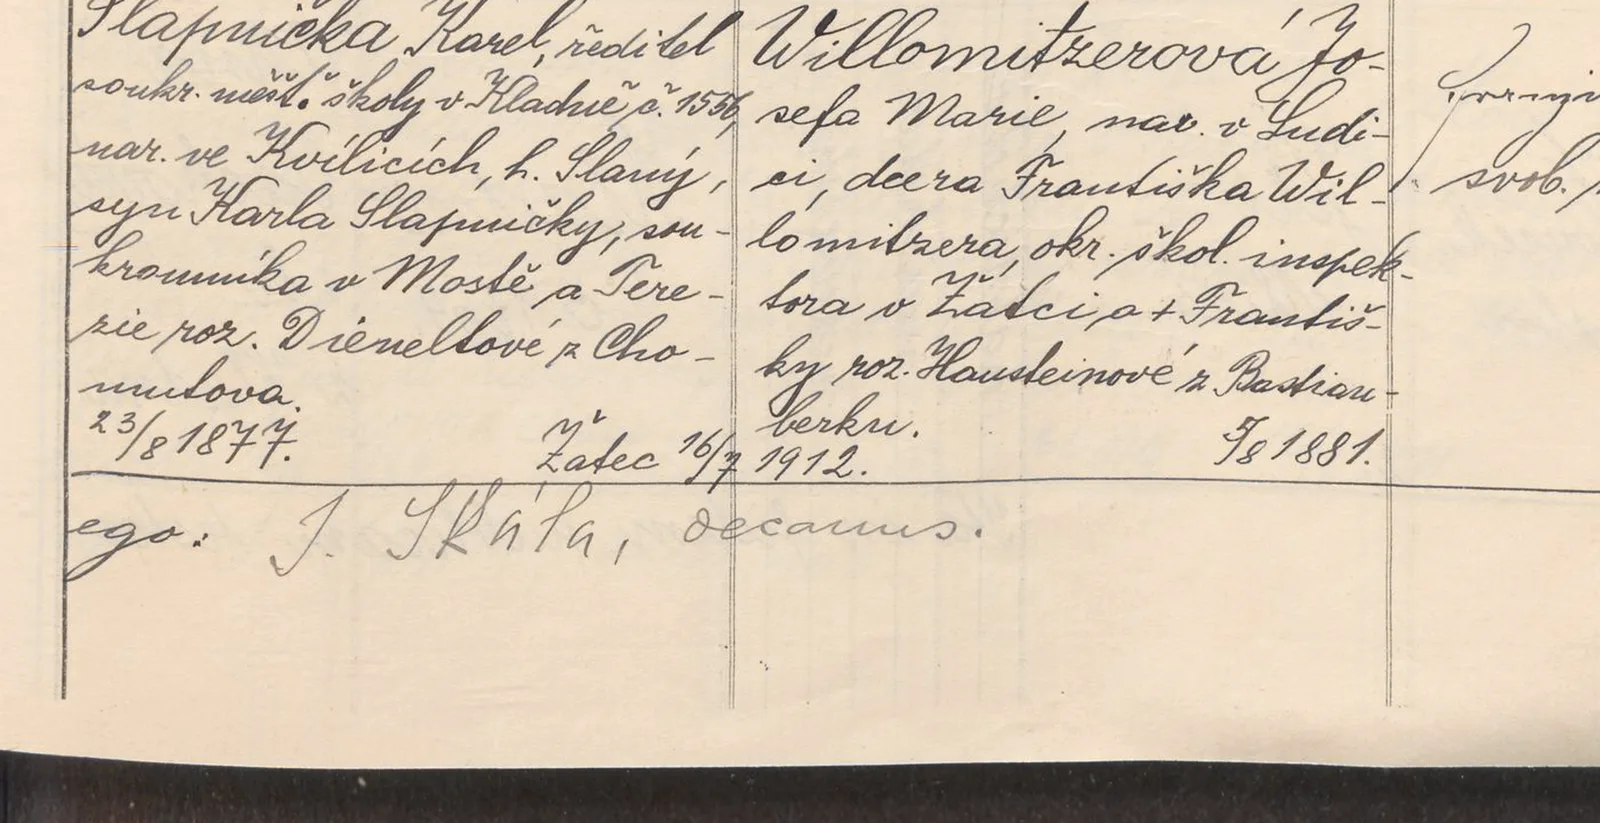 Slapnička Karel, ředitel
soukr. měšť. školy v Kladně č. 1556,
nar. ve Kvílicích, h. Slaný,
syn Karla Slapničky, sou-
kromníka v Mostě a Tere-
zie roz. Dieneltové z Cho-
mutova.
23/8 1877.
Willomitzerová Jo-
sefa Marie, nar. v Ludi-
ci, dcera Františka Wil-
lomitzera, okr. škol. inspek-
tora v Žatci, a + Františ-
ky roz. Hausteinové z Bastian-
berku.
5/8 1881.
Žatec 16/7 1912.
svob.
ego: J. Skála, decanus.